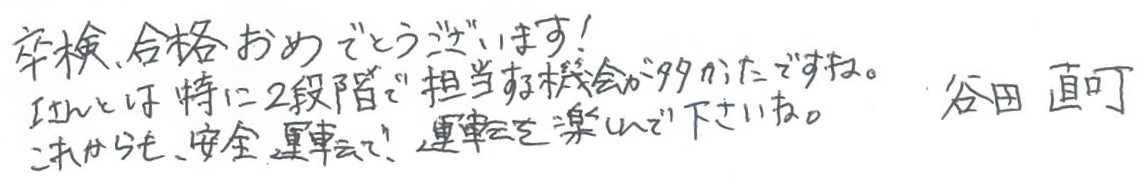 卒検、合格おめでとうございます!
Iさんとは特に2段階で担当する機会が多かったですね。
これからも、安全運転で、運転を楽しんで下さいね。
谷田 直可